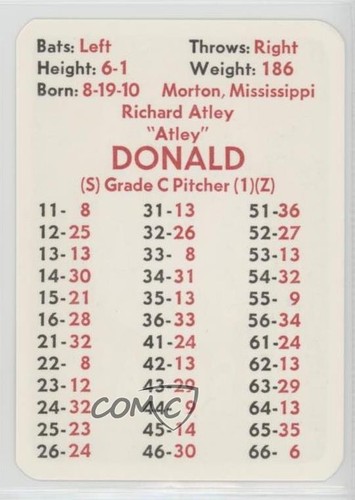 Bats: Left Throws: Right
Height: 6-1 Weight: 186
Born: 8-19-10 Morton, Mississippi
Richard Atley
"Atley"
DONALD
(S) Grade C Pitcher (1)(Z)
11- 8 31-13 51-36
12-25 32-26 52-27
13-13 33- 8 53-13
14-30 34-31 54-32
15-21 35-13 55- 9
16-28 36-33 56-34
21-32 41-24 61-24
22- 8 42-13 62-13
23-12 43-29 63-29
24-32 44- 9 64-13
25-23 45-14 65-35
26-24 46-30 66- 6
COMC